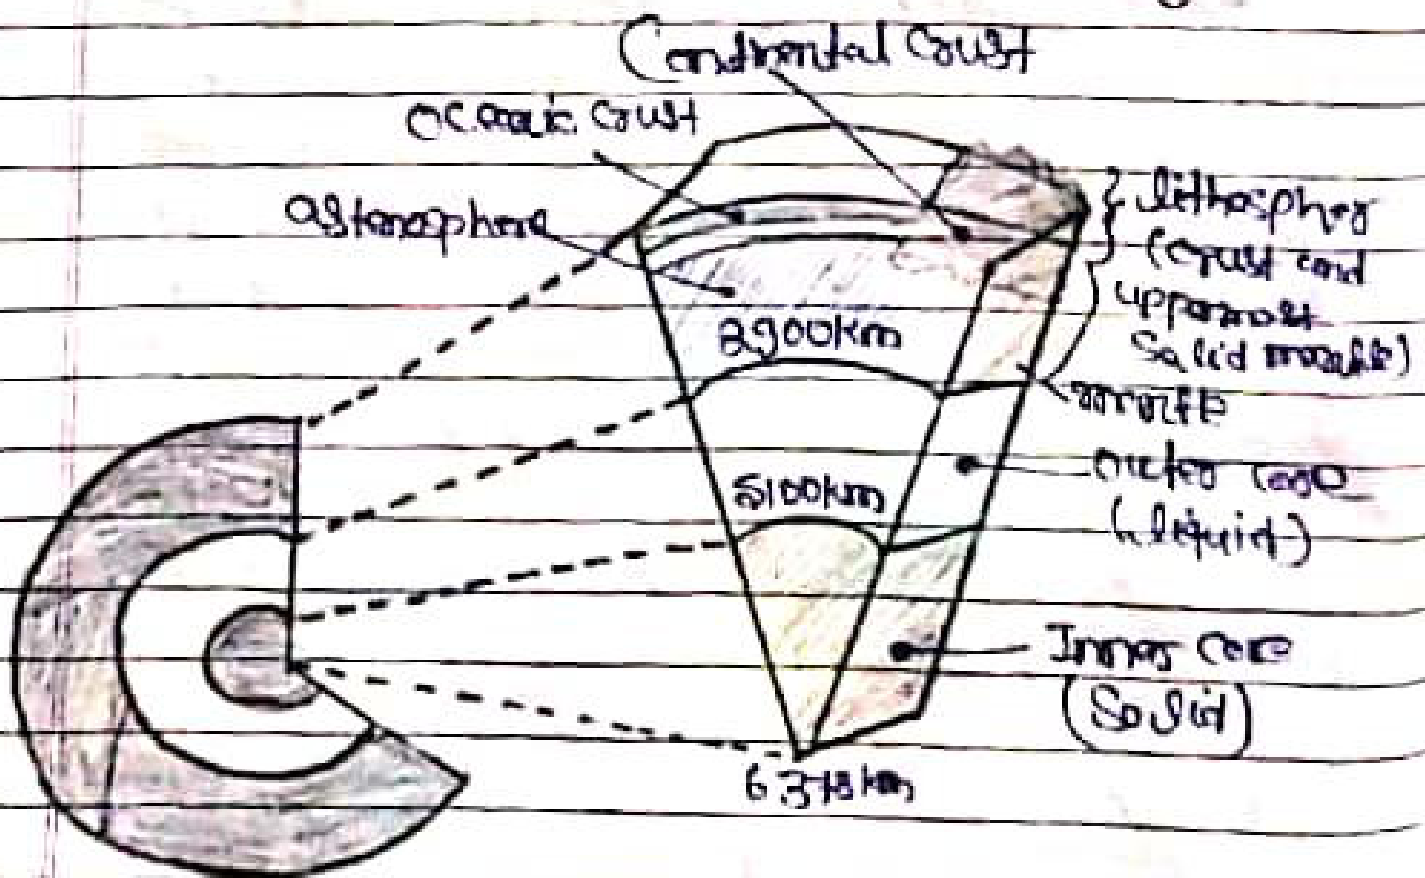 Continental Crust
Oceanic Crust
Astenosphere
lithospher
(Crust and
uppermost
Solid mantle)
2900km
mantle
5100km
outer core
(liquid)
Inner Core
(Solid)
6378km